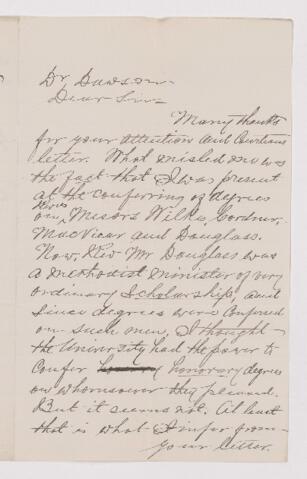 Dr Dawson
Dear Sir
Many thanks
for your attention and Courteous
letter. What misled me was
the fact that I was present
at the conferring of degrees
Revs
on, Messrs Wilks, Cordner,
MacVicar and Douglass.
Now, Rev Mr Douglass was
a Methodist Minister of very
ordinary Scholarship, and
since degrees were Confered
on such men, I thought
the University had the power to
Confer honorary degrees
on whomsoever they pleased.
But it seems not. At least
that is what I infer from
your letter.